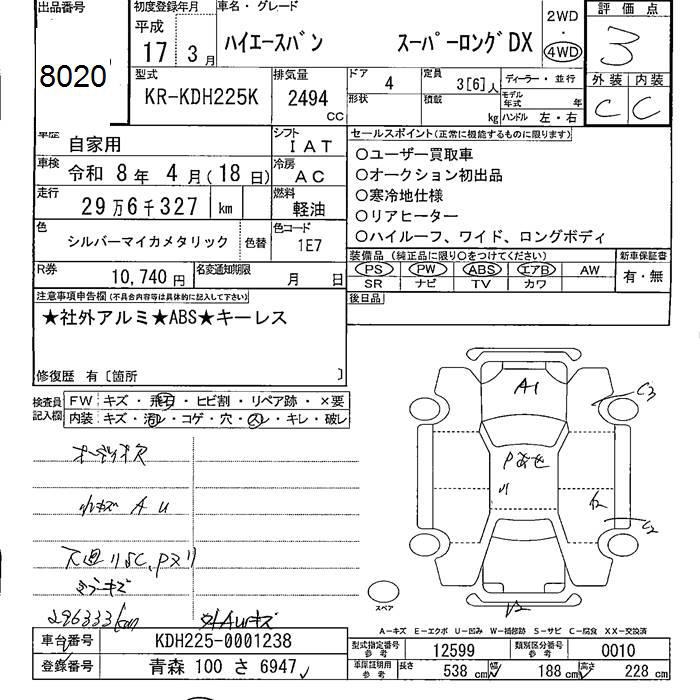 出品番号
8020
初度登録年月
平成
17 3月
車名・グレード
ハイエースバン スーパーロングDX
2WD
・
4WD
評価点
3
外装 内装
C C
型式
KR-KDH225K
排気量
2494 CC
ドア 4
定員 3[6]人
ディーラー・並行
形状
積載 kg
モデル年式 年
ハンドル 左・右
車歴 自家用
シフト IAT
車検 令和 8年 4月(18日)
冷房 AC
走行 29万6千327 km
燃料 軽油
色 シルバーマイカメタリック 色替
色コード 1E7
R券 10,740円
名変通知期限 月 日
セールスポイント(正常に機能するものに限ります)
○ユーザー買取車
○オークション初出品
○寒冷地仕様
○リアヒーター
○ハイルーフ、ワイド、ロングボディ
装備品 (純正品に限り○をつけてください)
新車保証書
PS PW ABS エアB AW
SR ナビ TV カワ
有・無
後日品
注意事項申告欄(不具合内容等は具体的に記入して下さい)
★社外アルミ★ABS★キーレス
修復歴 有〔箇所 〕
検査員記入欄
FW キズ・飛石・ヒビ割・リペア跡・×要
内装 キズ・汚レ・コゲ・穴・スレ・キレ・破レ
オーディオ欠
小キズ A U
下廻りSC、Pスリ
ミラーキズ
296333km
外AWキズ
A1
C3
Pあせ
C2
スペア
A-キズ E-エクボ U-凹み W-補修跡 S-サビ C-腐食 XX-交換済
車台番号 KDH225-0001238
登録番号 青森 100 さ 6947
型式指定番号 参考 12599
類別区分番号 参考 0010
車庫証明用 参考 長さ 538 cm 幅 188 cm 高さ 228 cm